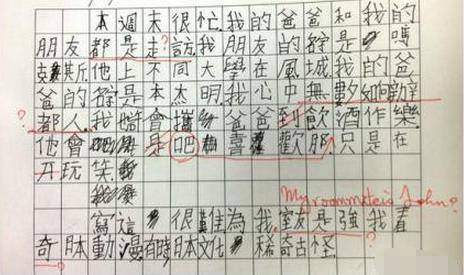 本週末很忙我的爸爸和我的
朋友都是走?訪我朋友的名是 嗎
克斯.他上不同大學在風城.我的爸
爸的名是本杰明我心中無數知
都人.我 會 爸爸到飲酒作樂
?
他會 是吧 喜歡那.只是在
开玩笑
My roommate is John?
寫這 很難為我.室友是強我看
奇.日本動漫有時日本文化 稀奇古怪.
?